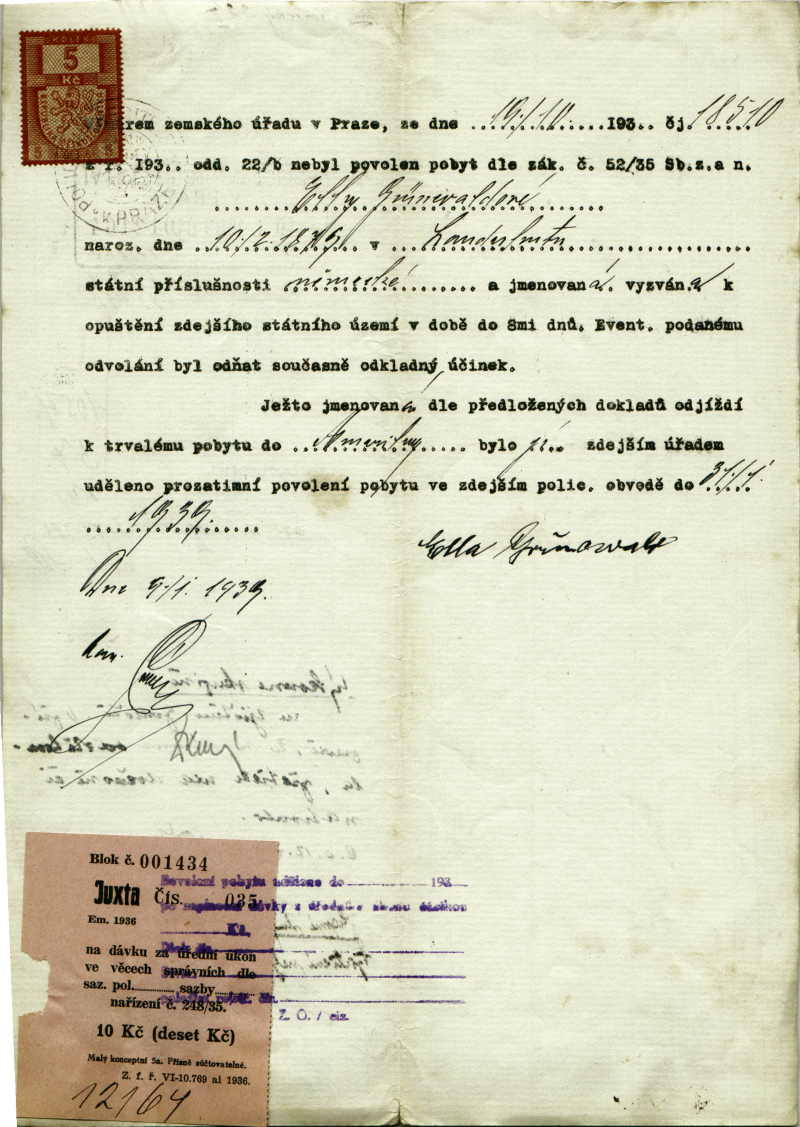 KOLEK
5
Kč
zemského úřadu v Praze, ze dne 19./10. 193.. čj. 18510
z r. 193.. odd. 22/b nebyl povolen pobyt dle zák. č. 52/35 Sb.z.a n.
Elly Grünwaldové
naroz. dne 10./2. 1879 v Landeshutu
státní příslušnosti německé a jmenovaná vyzvána k
opuštění zdejšího státního území v době do 8mi dnů. Event. podanému
odvolání byl odňat současně odkladný účinek.
Ježto jmenovaná dle předložených dokladů odjíždí
k trvalému pobytu do Ameriky bylo jí zdejším úřadem
uděleno prozatimní povolení pobytu ve zdejším polic. obvodě do 31./1.
1939.
Ella Grünwald
Dne 9./1. 1939.
Blok č. 001434
Juxta Čís. 035
Em. 1936
na dávku za úřední úkon
ve věcech správních dle
saz. pol. sazby
nařízení č. 248/35.
10 Kč (deset Kč)
Malý konceptní 5a. Přísně zúčtovatelné.
Z. f. ř. VI-10.769 ai 1936.
12/64
pobytu uděleno do 193
dávky z úředn.
Kč.